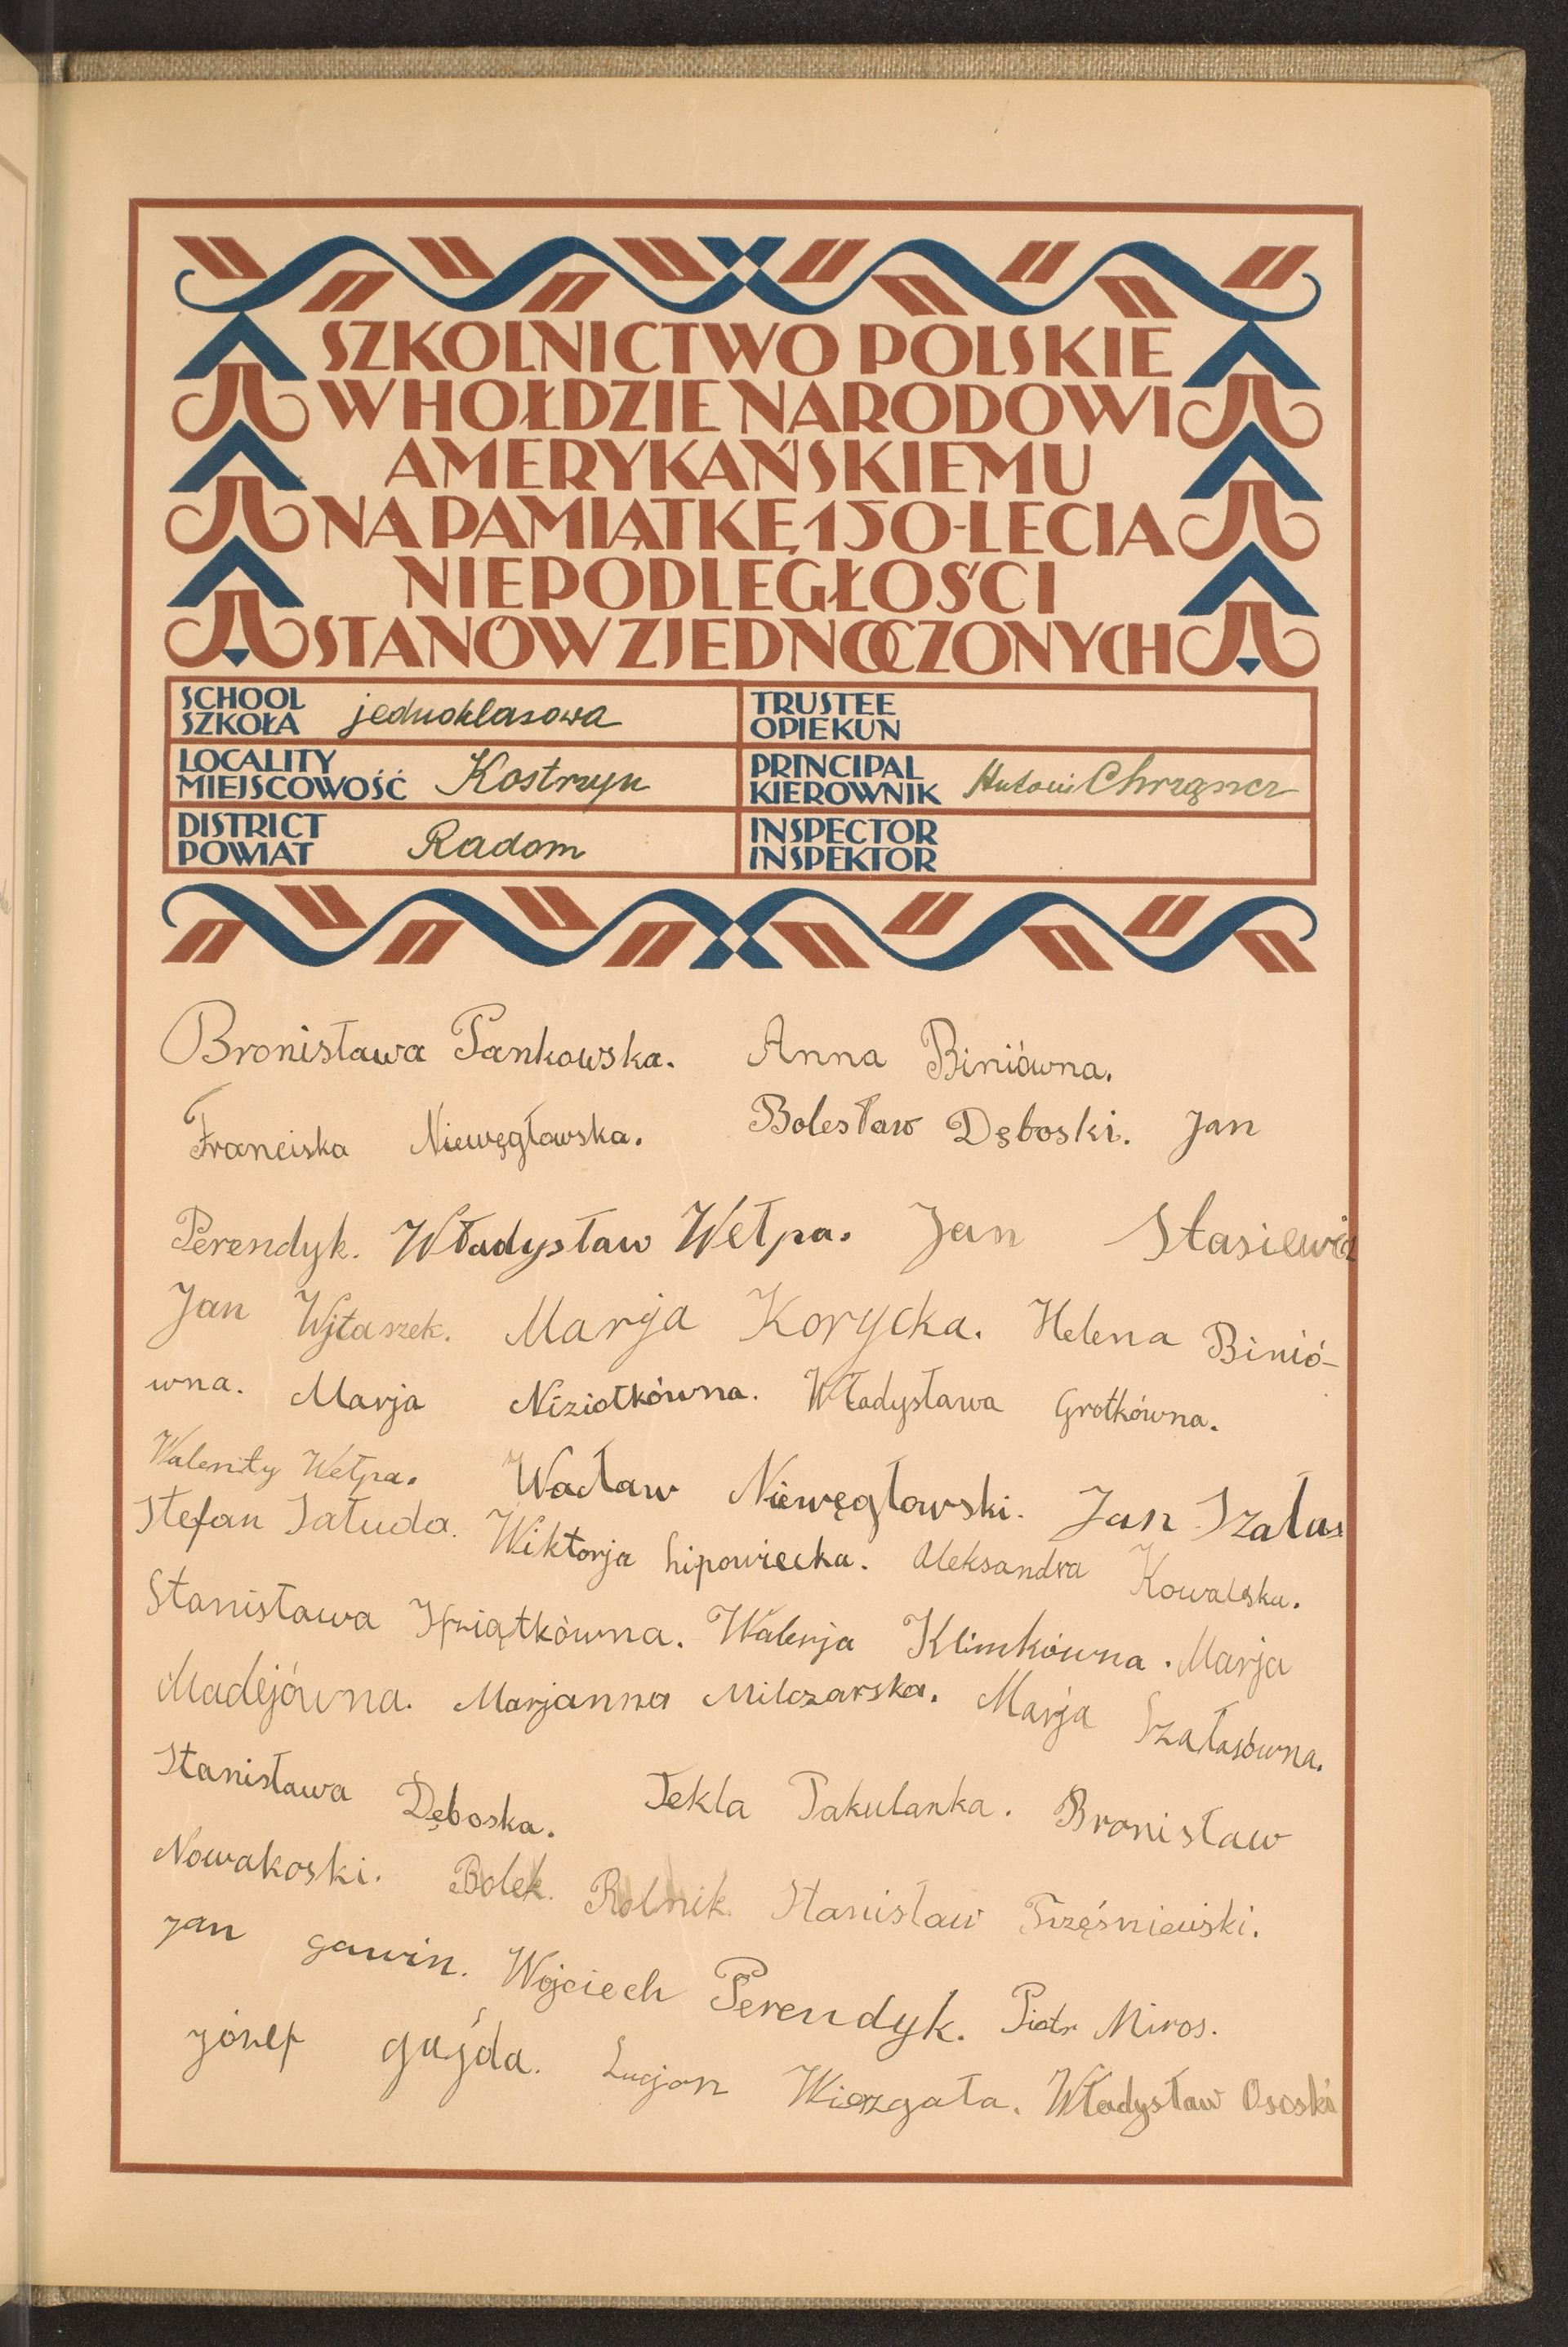 SZKOLNICTWO POLSKIE
W HOŁDZIE NARODOWI
AMERYKAŃSKIEMU
NA PAMIĄTKĘ 150-LECIA
NIEPODLEGŁOŚCI
STANÓW ZJEDNOCZONYCH
SCHOOL
SZKOŁA jednoklasowa
TRUSTEE
OPIEKUN
LOCALITY
MIEJSCOWOŚĆ Kostrzyn
PRINCIPAL
KIEROWNIK Antoni Chrząszcz
DISTRICT
POWIAT Radom
INSPECTOR
INSPEKTOR
Bronisława Pankowska. Anna Biniówna.
Franciska Niewęgłowska. Bolesław Dęboski. Jan
Perendyk. Władysław Wełpa. Jan Stasiewicz
Jan Wjtaszek. Marja Korycka. Helena Binió-
wna. Marja Niziołkówna. Władysława Grotkówna.
Walenity Wełpa. Wacław Niewęgłowski. Jan Szałas
Stefan Sałuda. Wiktorja Lipowiecka. Aleksandra Kowalska.
Stanisława Walerja Klimkówna. Marja
Madejówna. Marjanna Milczarska. Marja Szałasówna.
Stanisława Dęboska. Tekla Pakulanka. Bronisław
Nowakoski. Bolek. Rolnik. Stanisław Trzęśniewski.
Jan gawin. Wojciech Perendyk. Piotr Miros.
józef gajda. Lucjan Wiazgała. Władysław Ososki